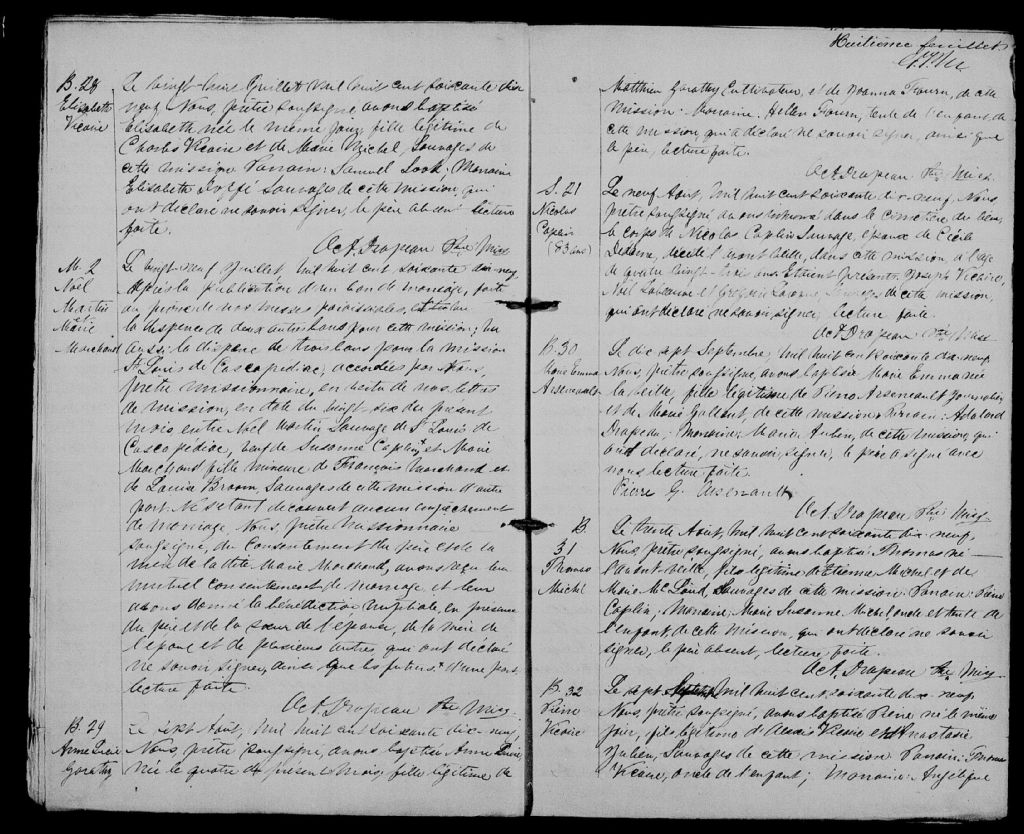 B. 28
Elisabeth
Vicaire
Le vingt-huit Juillet mil huit cent soixante dix
neuf Nous, prêtre soussigné avons baptisé
Elisabeth née le même jour, fille légitime de
Charles Vicaire et de Marie Michel, Sauvages de
cette mission Parrain: Samuel Look; Marraine
Elisabeth Sauvage de cette mission, qui
ont déclaré ne savoir signer, le père absent lecture
faite.
Oct. A. Drapeau Ptre Miss.
M. 2
Noël
Martin
et
Marie
Marchand
Le vingt-neuf Juillet, mil huit cent soixante dix neuf
Après la publication d'un ban de mariage, faite
au prône de nos messes paroissiales,
la dispense de deux autres bans pour cette mission; vu
aussi la dispense de trois bans pour la mission
St Louis de Cascapédiac, accordées par Nous,
prêtre missionnaire, en vertu de nos lettres
de mission, en date du vingt six du présent
mois entre Noël Martin Sauvage de St Louis de
Cascapédiac, veuf de Susanne Caplin, et Marie
Marchand fille mineure de François Marchand et
de Louise Broom, Sauvages de cette mission d'autre
part. Ne s'étant découvert aucun empêchement
de mariage, Nous, prêtre Missionnaire
soussigné, du consentement du père et de la
mère de la dite Marie Marchand, avons reçu leur
mutuel consentement de mariage et leur
avons donné la bénédiction nuptiale, en présence
du père et de la sœur de l'épouse, de la mère de
l'époux et de plusieurs autres qui ont déclaré
ne savoir signer, ainsi que les futurs. D'une part
lecture faite.
Oct A. Drapeau Ptre Miss.
B. 29
Anne
Gorathy
Le Août, mil huit cent soixante dix-neuf,
Nous, prêtre soussigné, avons baptisé Anne
née le quatre du présent Mois, fille légitime de
Huitième feuillet
Matthieu Gorathy Cultivateur, et de Joanna de cette
mission. Marraine, Hellen tante de l'enfant de
cette mission qui a déclaré ne savoir signer, ainsi que
le père, lecture faite.
Oct A. Drapeau Ptre Miss.
S. 21
Nicolas
Caplin
(83 ans)
Le neuf Août, mil huit cent soixante dix-neuf, Nous
Prêtre soussigné avons inhumé dans le cimetière du lieu
le corps de Nicolas Caplin Sauvage, époux de Cécile
décédé l'avant veille, dans cette mission, à l'âge
de quatre vingt trois ans. Etaient présents, Joseph Vicaire,
Noël et Grégoire Sauvages de cette mission,
qui ont déclaré ne savoir signer, lecture faite.
Oct A. Drapeau Ptre Miss.
B. 30
Marie Emma
Arseneault
Le dix sept Septembre, mil huit cent soixante dix-neuf
Nous, prêtre soussigné, avons baptisé Marie Emma née
la veille, fille légitime de Pierre Arseneault journalier
et de Marie Gallant, de cette mission: Parrain: Adelard
Drapeau; Marraine: Marie Auben, de cette mission, qui
ont déclaré, ne savoir, signer, le père a signé avec
nous lecture faite.
Pierre G. Arsenault
Oct A. Drapeau Ptre Miss.
B.
31
Thomas
Michel
Le trente Août, mil huit cent soixante dix-neuf
Nous, prêtre soussigné, avons baptisé Thomas né
l'avant veille, fils légitime d'Etienne Michel et de
Marie Mc Loud, Sauvages de cette mission Parrain: Pierre
Caplin, Marraine: Marie Susanne Michel, oncle et tante de
l'enfant, de cette Mission, qui ont déclaré ne savoir
signer, le père absent, lecture faite.
Oct A. Drapeau Ptre Miss.
B. 32
Pierre
Vicaire
Le sept mil huit cent soixante dix-neuf
Nous, prêtre soussigné, avons baptisé Pierre né le même
jour, fils légitime d'Alexis Vicaire et d'Anastasie
Sauvages de cette mission Parrain: Thomas
Vicaire, oncle de l'enfant; Marraine: Angélique